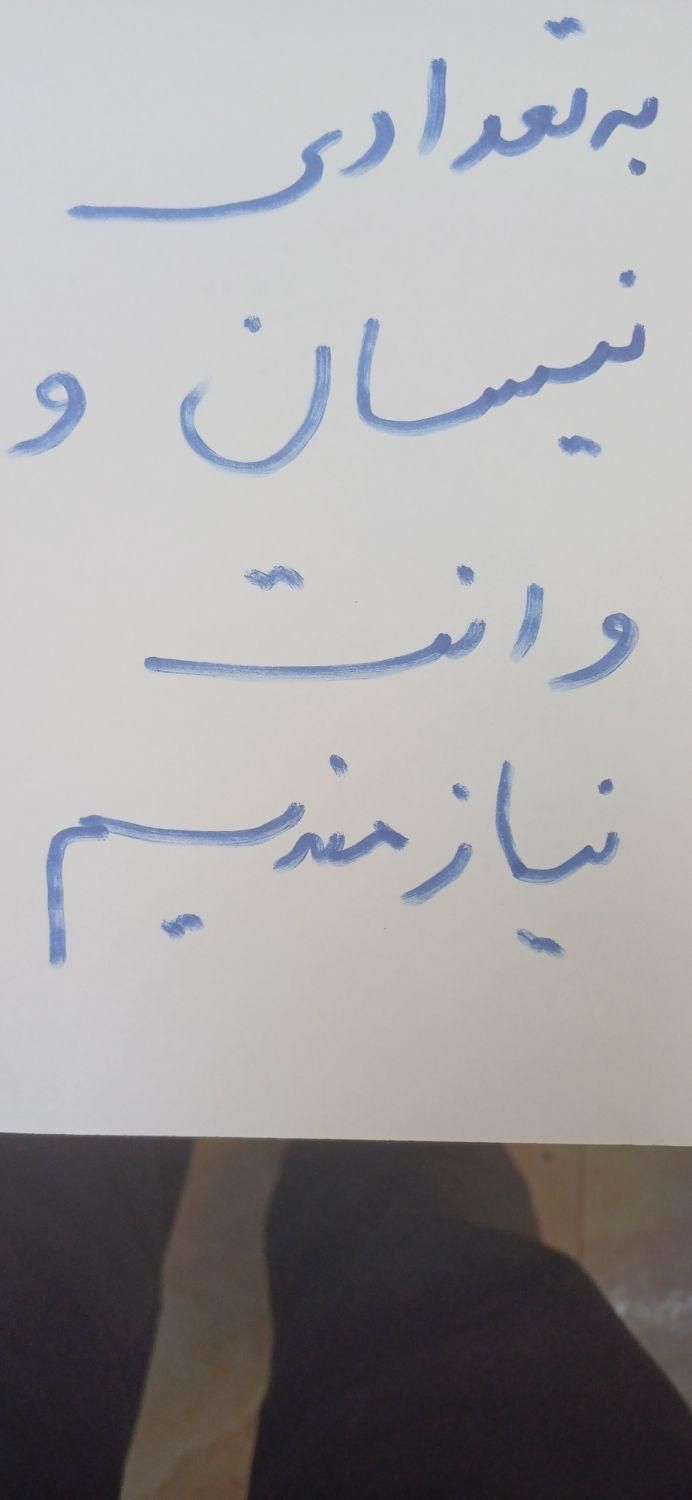 به تعدادی
نیسان و
وانت
نیازمندیم